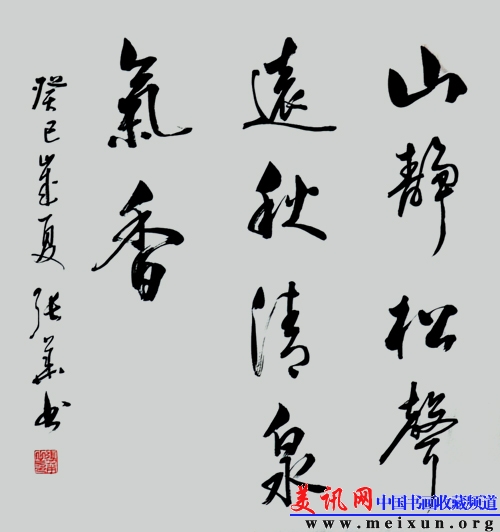 山靜松聲
遠秋清泉
氣香
癸巳歲夏 張華書
美讯网 中国书画收藏频道
www.meixun.org